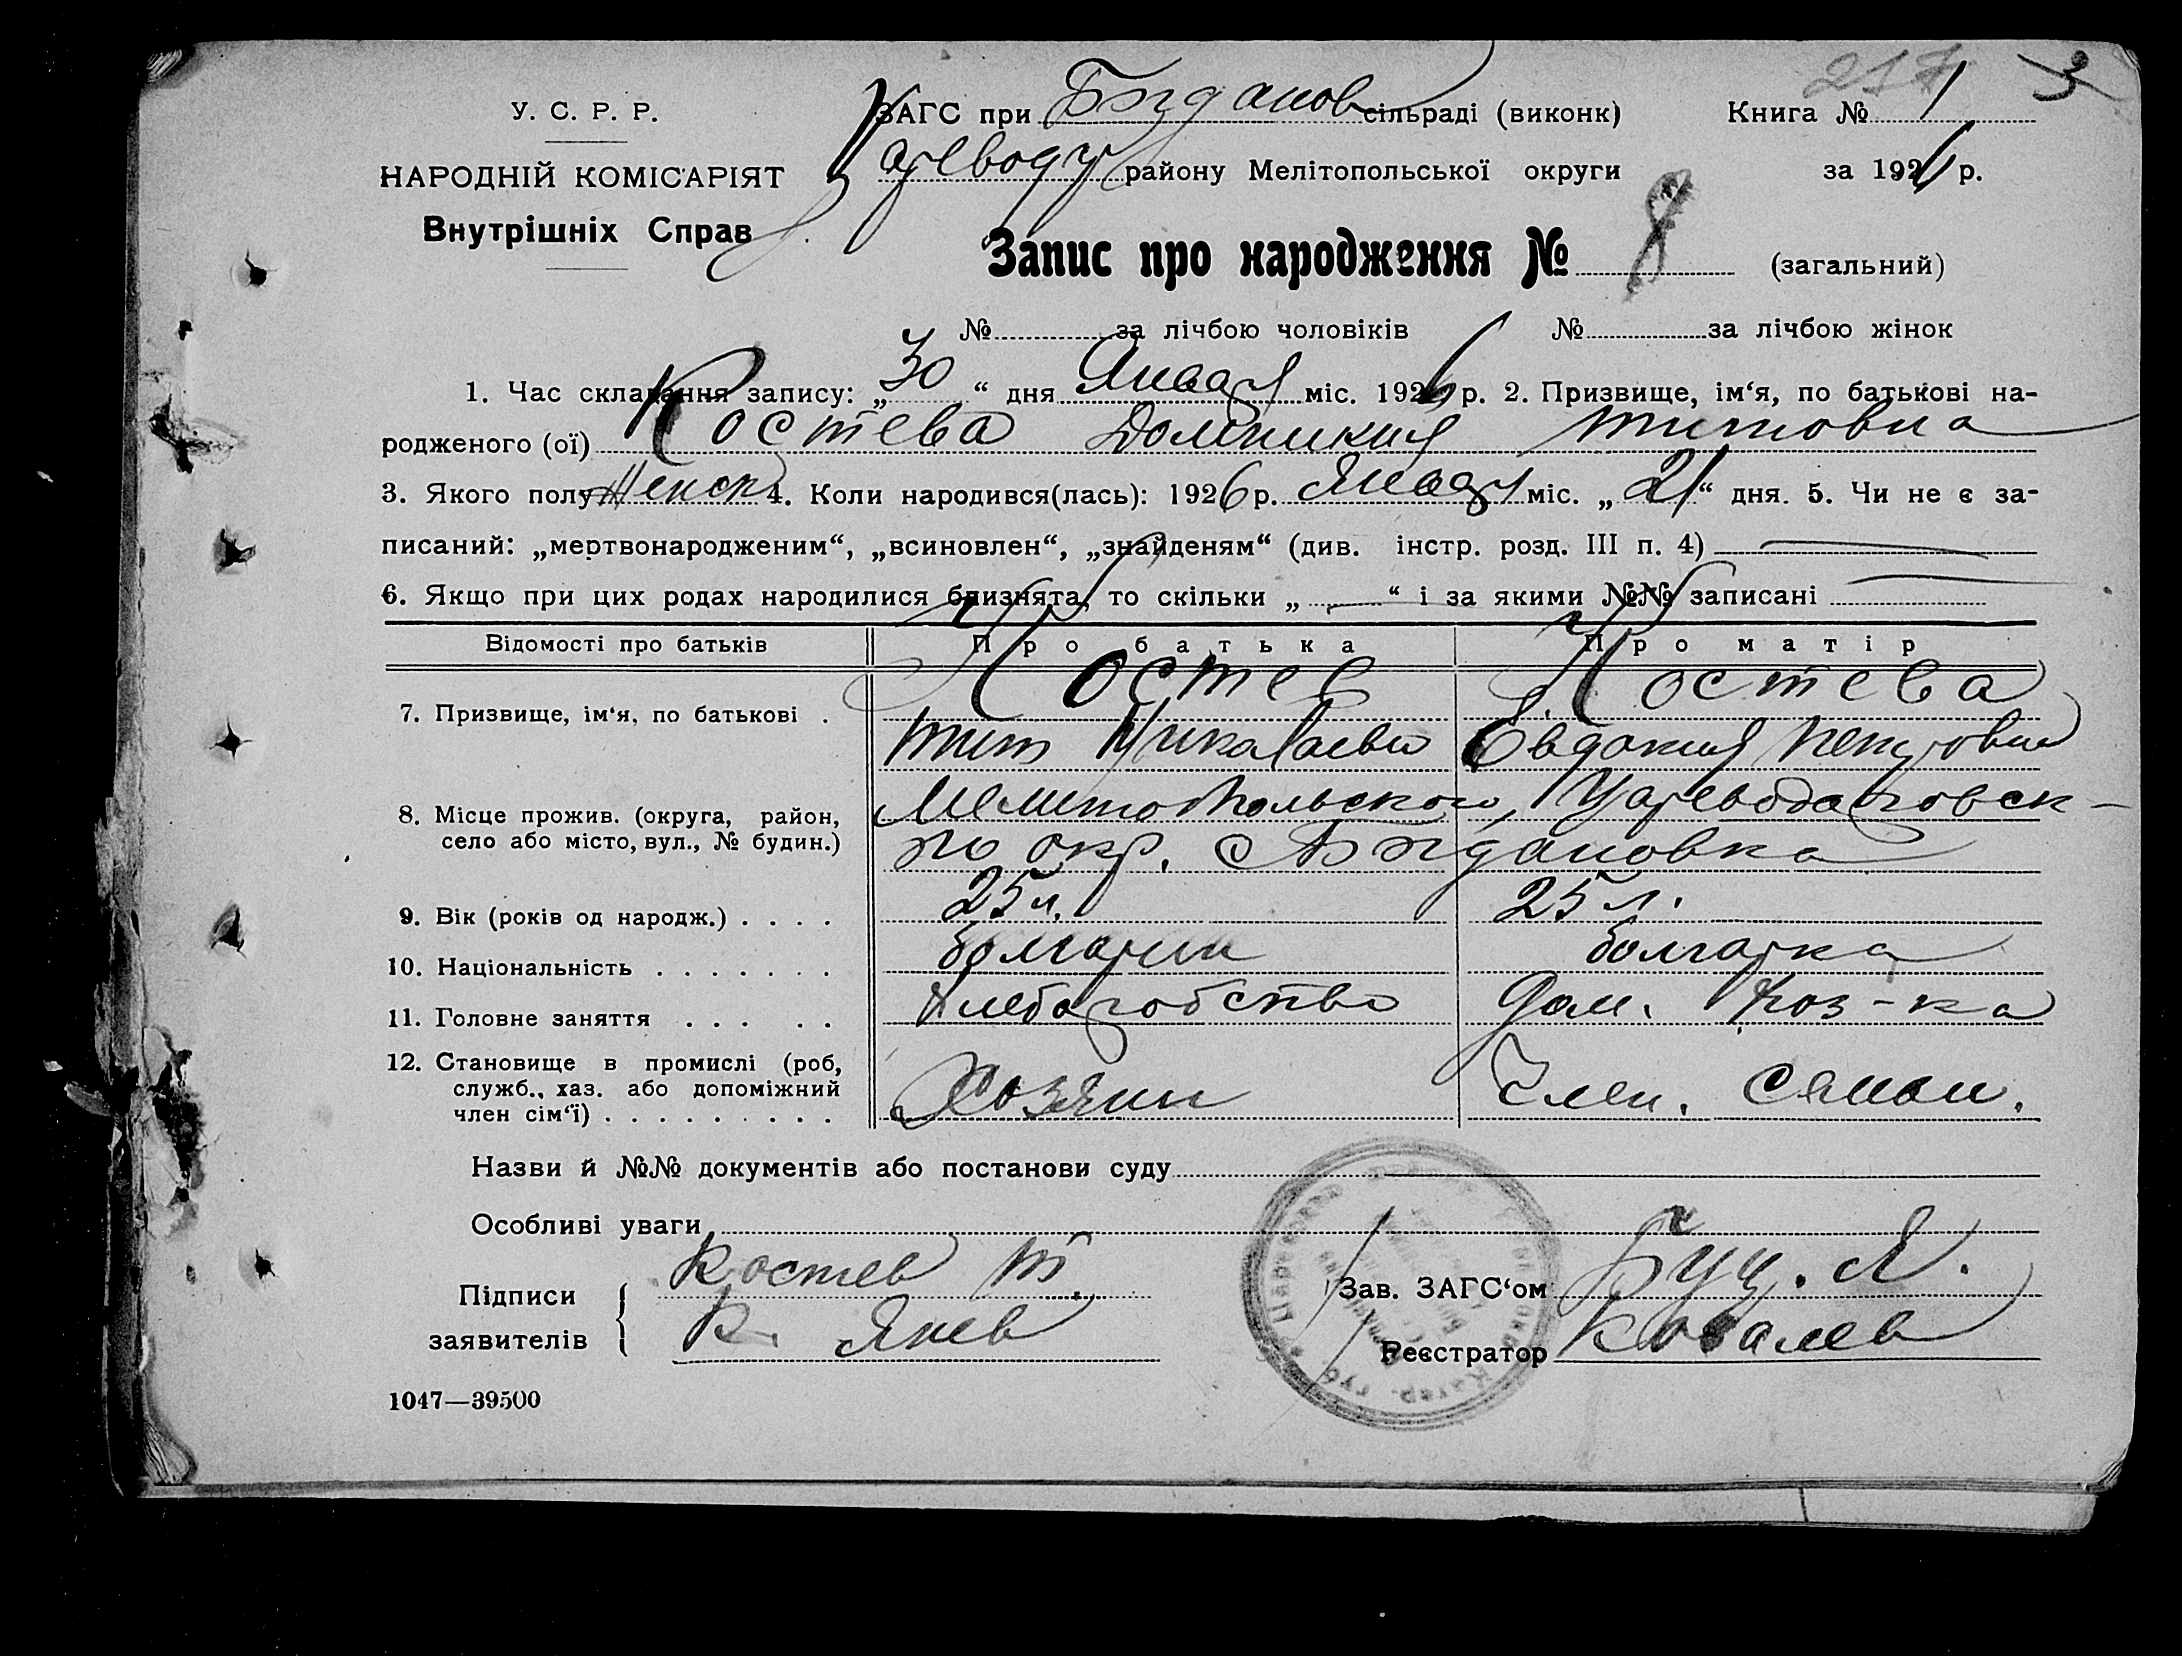 217 3
У. С. Р. Р.
НАРОДНІЙ КОМІСАРІЯТ
Внутрішніх Справ
ЗАГС при Богданов сільраді (виконк) Книга № 1
Цареводар району Мелітопольської округи за 1926 р.
Запис про народження № 8 (загальний)
№ за лічбою чоловіків № за лічбою жінок
1. Час складання запису: „30“ дня Января міс. 1926 р. 2. Призвище, ім‘я, по батькові на-
родженого (ої) Костева Домникия Титовна
3. Якого полу Женск 4. Коли народився(лась): 1926 р. Января міс. „21“ дня. 5. Чи не є за-
писаний: „мертвонародженим“, „всиновлен“, „знайденям“ (див. інстр. розд. III п. 4)
6. Якщо при цих родах народилися близнята, то скільки „ “ і за якими №№ записані
Відомості про батьків Про батька Про матір
7. Призвище, ім‘я, по батькові . Костев Костева
Тит Николаевич Евдокия Петровна
8. Місце прожив. (округа, район, село або місто, вул., № будин.) Мелитопольского, Цареводаровск-
го окр. с Богдановка
9. Вік (років од народж.) . . . . 25 л. 25 л.
10. Національність . . . . . . . болгарин болгарка
11. Головне заняття . . . . . Хлеборобство Дом. Хоз-ка
12. Становище в промислі (роб,
служб., хаз. або допоміжний
член сім‘ї) . . . . . . . . . Хозяин Член. Семьи.
Назви й №№ документів або постанови суду
Особливі уваги
Підписи заявителів Костев Т.
К. Янев
Зав. ЗАГС‘ом
Реєстратор Ковалев
1047—39500